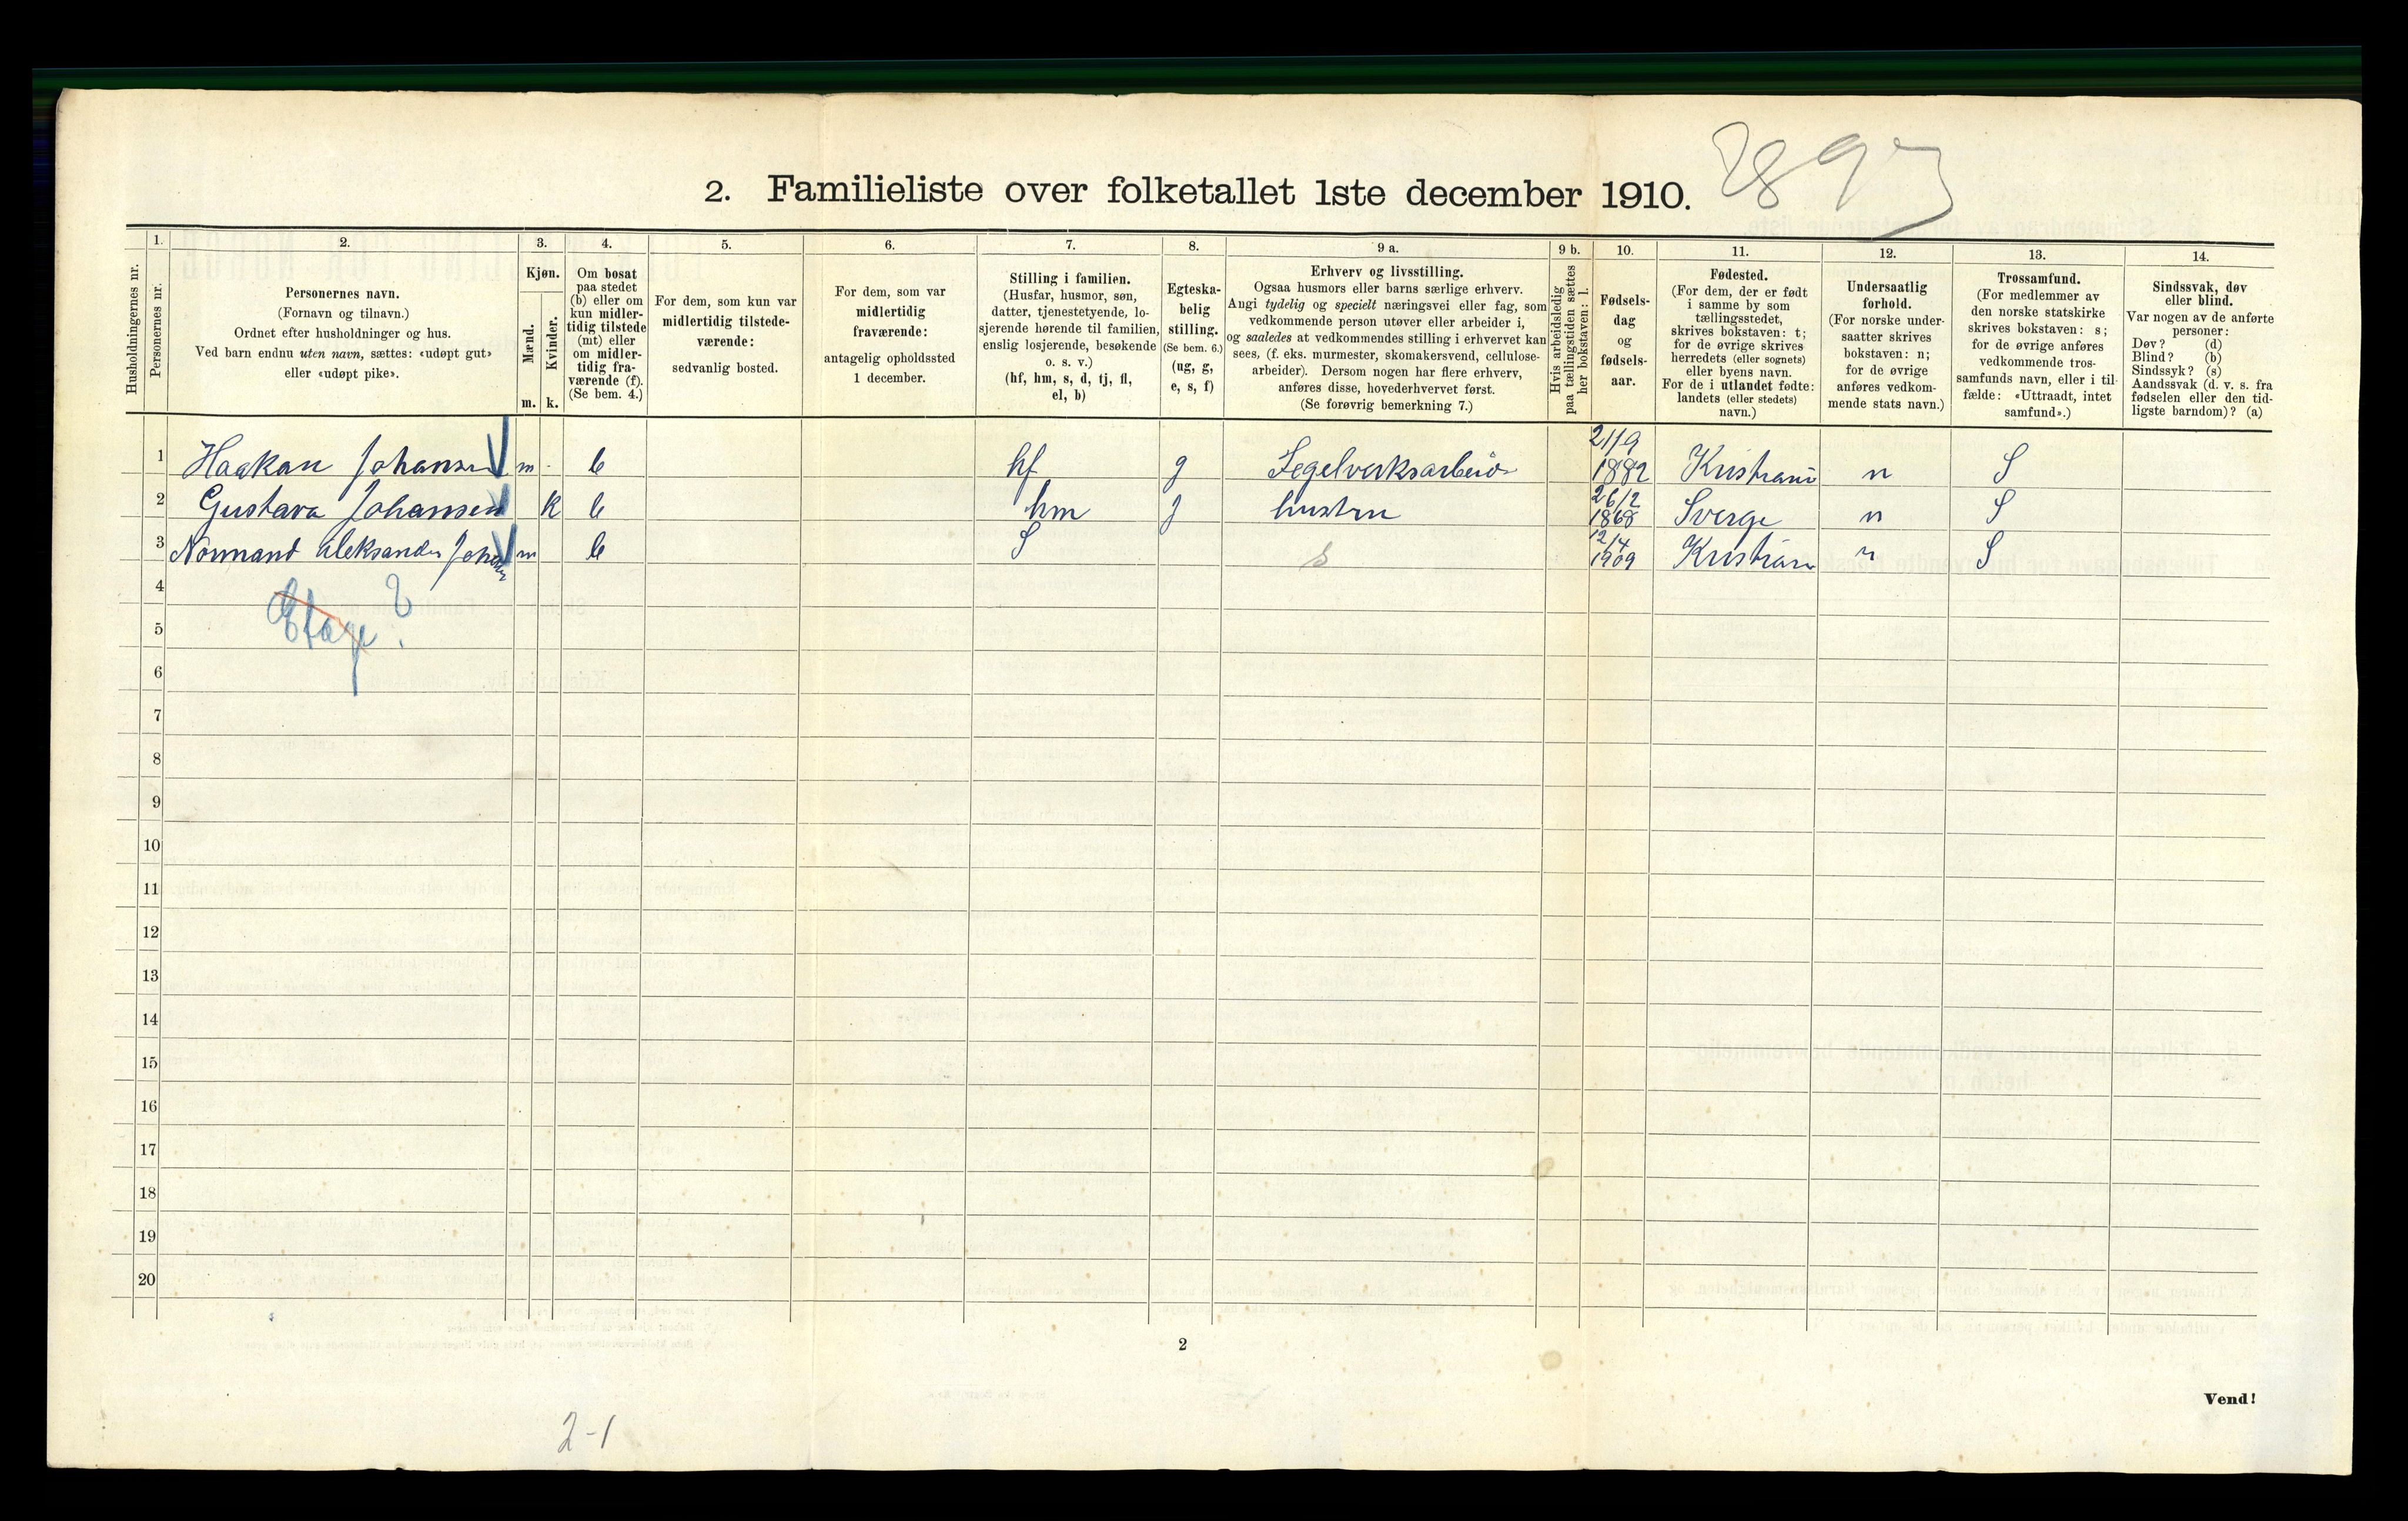 2897
2. Familieliste over folketallet 1ste december 1910.
Husholdningernes nr.
1.
Personernes nr.
2.
Personernes navn.
(Fornavn og tilnavn.)
Ordnet efter husholdninger og hus.
Ved barn endnu uten navn, sættes: «udøpt gut»
eller «udøpt pike».
3.
Kjøn.
Mænd.
Kvinder.
m. k.
4.
Om bosat
paa stedet
(b) eller om
kun midler-
tidig tilstede
(mt) eller
om midler-
tidig fra-
værende (f).
(Se bem. 4.)
5.
For dem, som kun var
midlertidig tilstede-
værende:
sedvanlig bosted.
6.
For dem, som var
midlertidig
fraværende:
antagelig opholdssted
1 december.
7.
Stilling i familien.
(Husfar, husmor, søn,
datter, tjenestetyende, lo-
sjerende hørende til familien,
enslig losjerende, besøkende
o. s. v.)
(hf, hm, s, d, tj, fl,
el, b)
8.
Egteska-
belig
stilling.
(Se bem. 6.)
(ug, g,
e, s, f)
9 a.
Erhverv og livsstilling.
Ogsaa husmors eller barns særlige erhverv.
Angi tydelig og specielt næringsvei eller fag, som
vedkommende person utøver eller arbeider i,
og saaledes at vedkommendes stilling i erhvervet kan
sees, (f. eks. murmester, skomakersvend, cellulose-
arbeider). Dersom nogen har flere erhverv,
anføres disse, hovederhvervet først.
(Se forøvrig bemerkning 7.)
9 b.
Hvis arbeidsledig
paa tællingstiden sættes
her bokstaven: l.
10.
Fødsels-
dag
og
fødsels-
aar.
11.
Fødested.
(For dem, der er født
i samme by som
tællingsstedet,
skrives bokstaven: t;
for de øvrige skrives
herredets (eller sognets)
eller byens navn.
For de i utlandet fødte:
landets (eller stedets)
navn.)
12.
Undersaatlig
forhold.
(For norske under-
saatter skrives
bokstaven: n;
for de øvrige
anføres vedkom-
mende stats navn.)
13.
Trossamfund.
(For medlemmer av
den norske statskirke
skrives bokstaven: s;
for de øvrige anføres
vedkommende tros-
samfunds navn, eller i til-
fælde: «Uttraadt, intet
samfund».)
14.
Sindssvak, døv
eller blind.
Var nogen av de anførte
personer:
Døv? (d)
Blind? (b)
Sindssyk? (s)
Aandssvak (d. v. s. fra
fødselen eller den tid-
ligste barndom)? (a)
1 Haakan Johansen m b hf g Tegelverksarbeid 21/9 1882 Kristiani n S
2 Gustava Johansen k b hm g hustru 26/2 1868 Sverge n S
3 Normand Aleksander b m S s 12/4 1909 Kristian n S
4
Etage?
5
6
7
8
9
10
11
12
13
14
15
16
17
18
19
20
2
Vend!
2-1